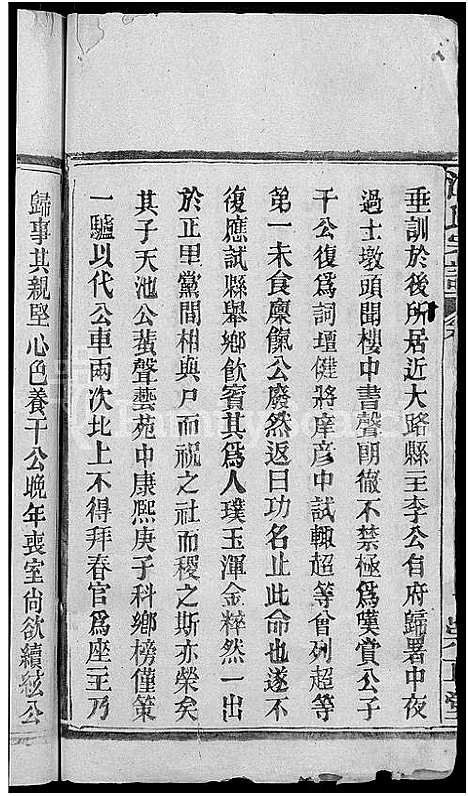 垂訓於後所居近大路縣王李公自府歸署中夜
過土墩頭聞樓中書聲朗徹不禁極爲嘆賞公子
干公復爲詞壇健將庠彦中試輙超等會列超等
第一未食廩餼公廢然返曰功名止此命也遂不
復應試縣舉鄉飲賓其爲人璞玉渾金粹然一出
於正里黨間相與尸而祝之社而稷之斯亦榮矣
其子天池公蜚聲藝苑中康熙庚子科鄉榜僅策
一驢以代公車兩次北上不得拜春官爲座王乃
歸事其親堅心色養干公晚年喪室尙欲續絃公